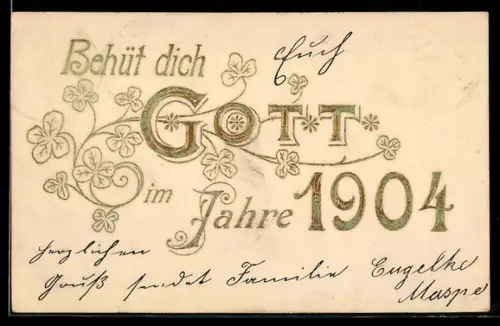 Behüt dich Euch
GOTT
im Jahre 1904
herzlichen
Gruß sendet Familie Engelke
Maspe